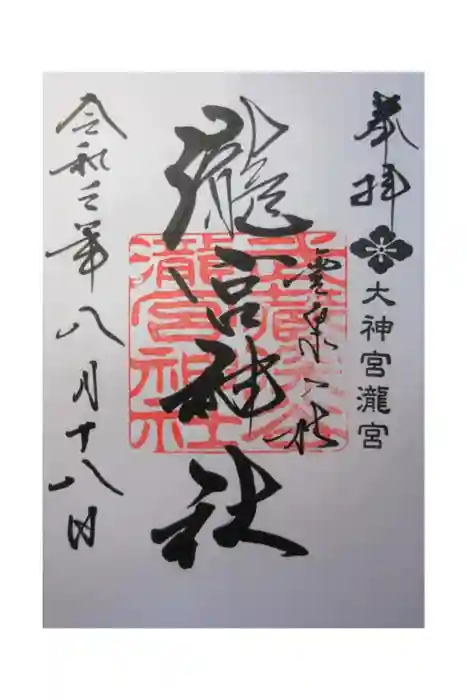 奉拝
大神宮瀧宮
霊泉之社
瀧宮神社
武蔵深谷
瀧宮神社
令和三年八月十八日